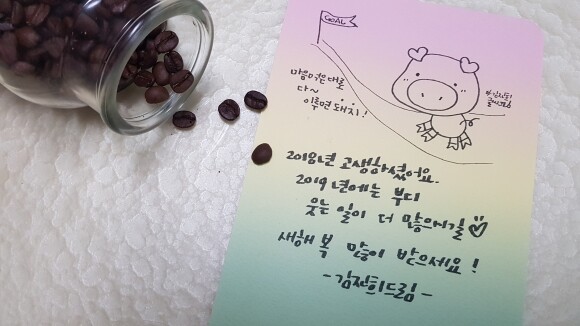 GOAL
마음먹은대로
다~
이루면 돼지!
2018년 고생하셨어요.
2019년에는 부디
웃는 일이 더 많으시길
새해 복 많이 받으세요!
-김진희드림-